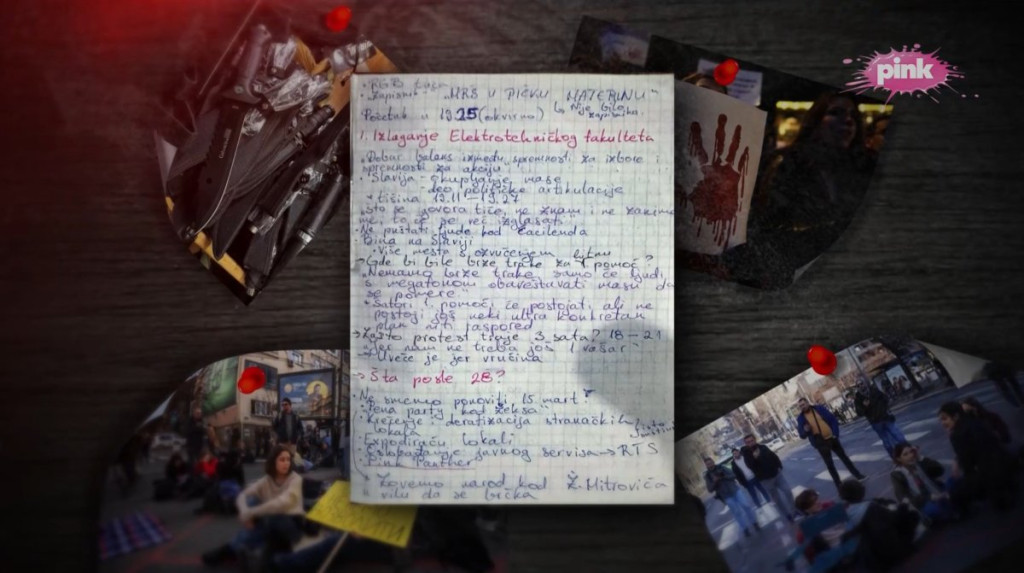 pink
Zapisnik: "MRŠ U PIČKU MATERINU"
Nije bilo
zapisnika
Početak u 19:25 (okvirno)
1. Izlaganje Elektrotehničkog fakulteta
Dobar balans između spremnosti za izbore i
spremnosti za akciju
Slavija - okupljanje mase
- deo političke artikulacije
* tišina
Što se govora tiče, ne znam i ne zanima
me, to će se već izglasati
Ne puštati ljude kod Ćacilenda
Bina na Slaviji
Više mesta s ozvučenjem bitnu
→ Gde bi bile brze trake za 1 pomoć?
"Nemamo brze trake, samo će ljudi
s megafonom obaveštavati masu da
se pomere."
Šatori 1. pomoći će postojati, ali ne
postoji još neki ultra konkretan
plan niti raspored
→ Zašto protest traje 3 sata? 18-21
"Jer nam ne treba još 1 vašar"
Uveče je jer vrućina
→ Šta posle 28?
Ne smemo ponoviti 15. mart!
"Pena party kod Žeksa"
Krečenje i deratizacija stranačkih
lokala
Expodiraću lokali
Oslobađanje javnog servisa → RTS
Pink Panther
Zovemo narod kod Ž. Mitrovića
u vilu da se brčka